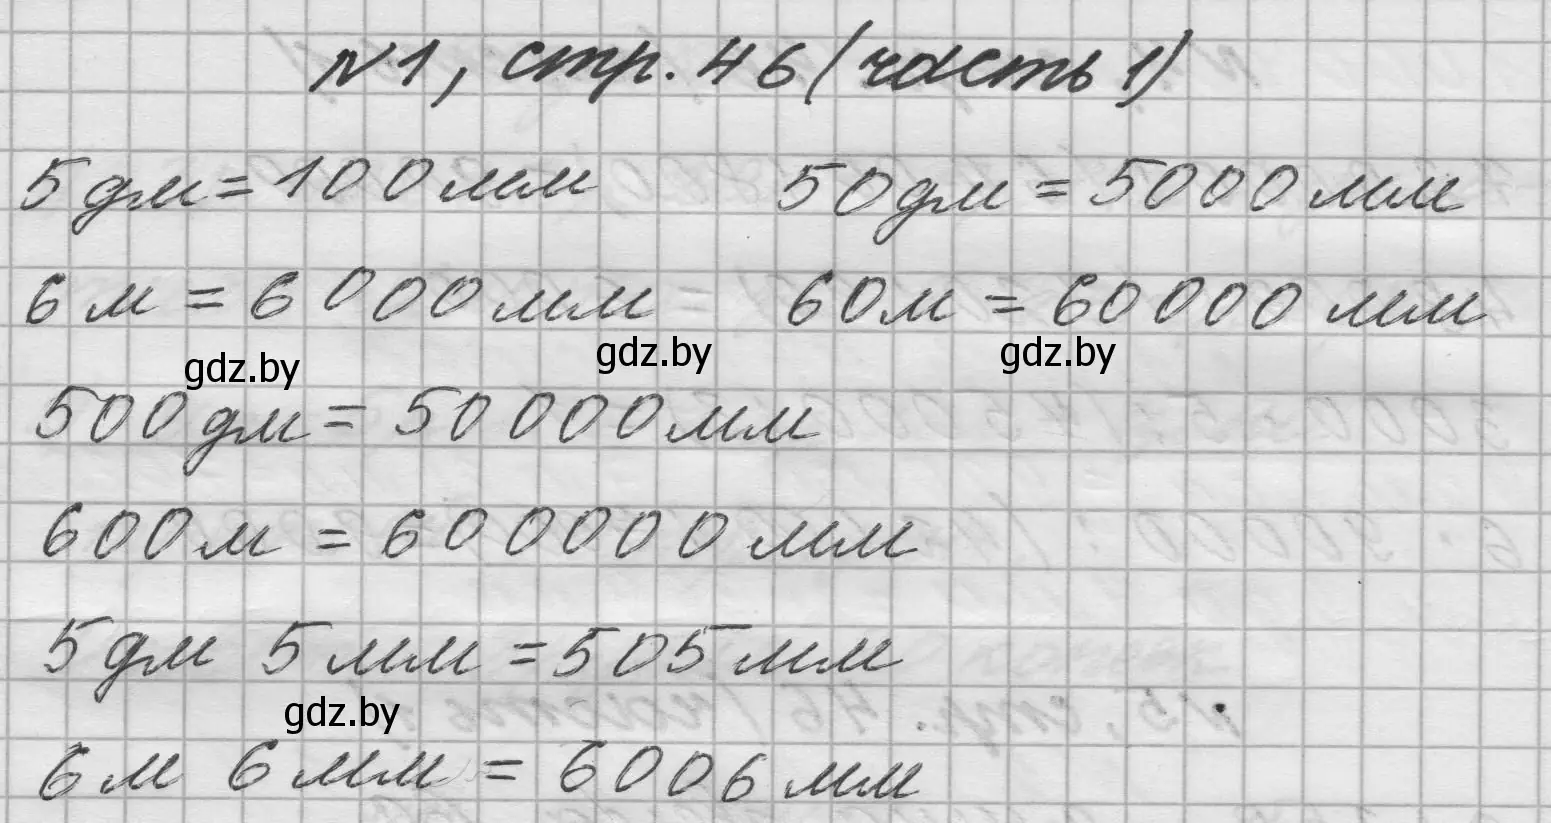 №1, стр. 46 (часть 1)
5 дм = 100 мм 50 дм = 5000 мм
6 м = 6000 мм 60 м = 60000 мм
gdz.by gdz.by gdz.by
500 дм = 50000 мм
600 м = 600000 мм
5 дм 5 мм = 505 мм
gdz.by
6 м 6 мм = 6006 мм